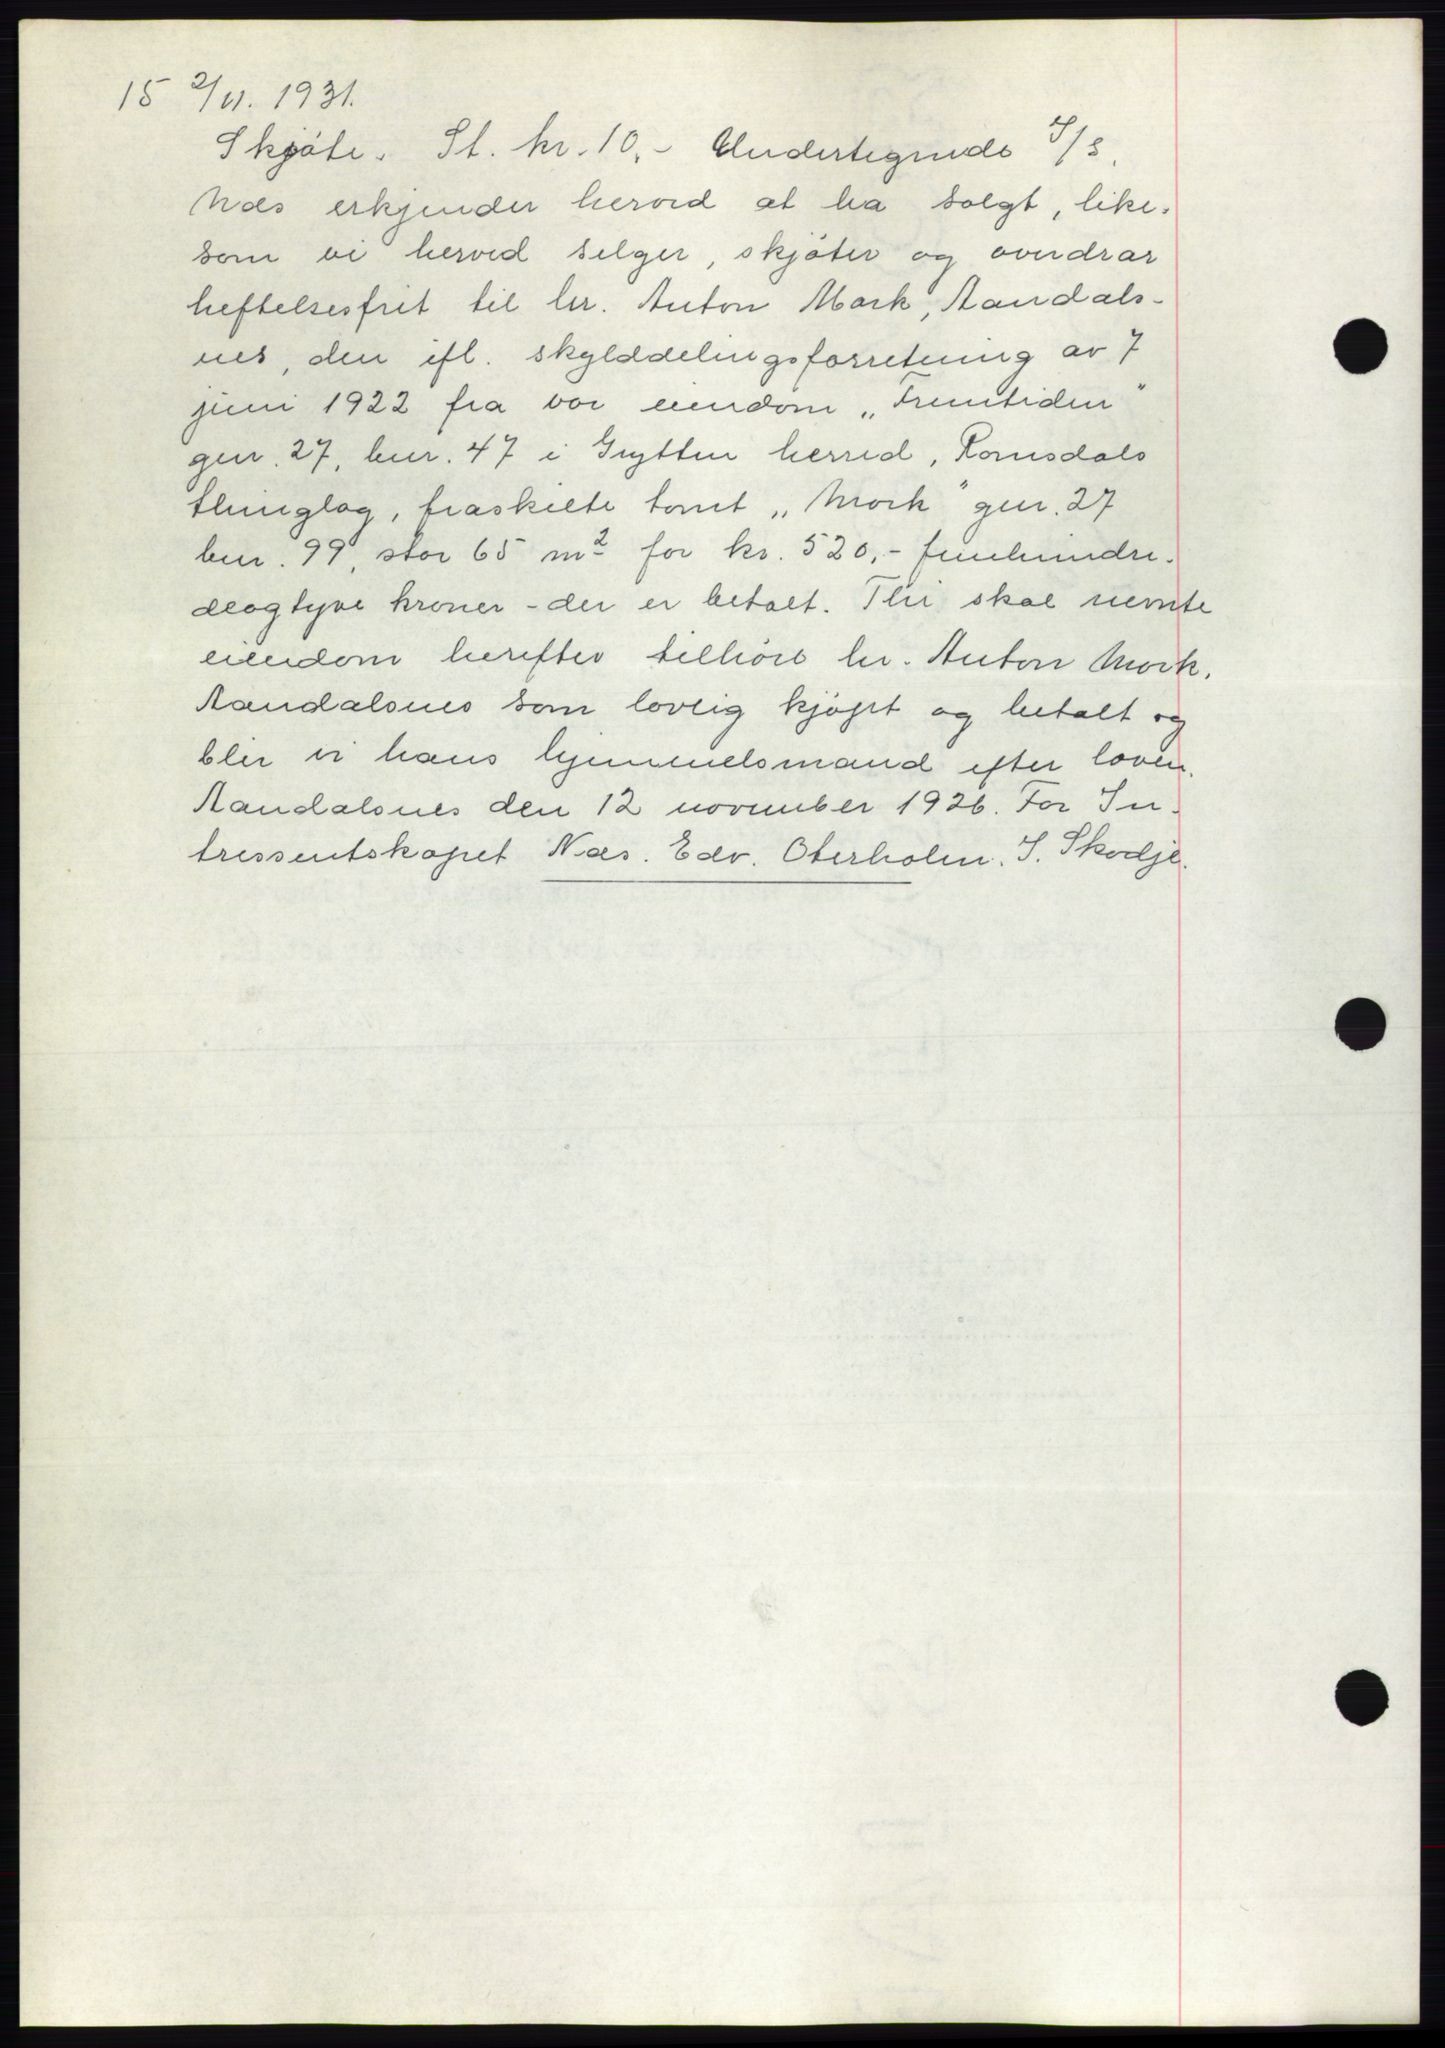 15 2/11. 1931.
Skjøte. St. kr. 10,- Undertegnede I/S,
Næs erkjender herved at ha solgt, like-
som vi herved selger, skjøter og overdrar
heftelsesfrit til hr. Anton Mork, Aandals-
nes, den ifl. skylddelingsforretning av 7
juni 1922 fra vor eiendom „Fremtiden"
gnr. 27, bnr. 47 i Grytten herred, Romsdals
thinglag, fraskilte tomt „Mork" gnr. 27
bnr. 99, stor 65 m² for kr. 520,- femhundre-
deogtyve kroner - der er betalt. Thi skal nemte
eiendom herefter tilhøre hr. Anton Mork,
Aandalsnes som lovlig kjøpt og betalt og
blir vi hans hjemmelsmand efter loven.
Aandalsnes den 12 november 1926. For In-
tressentskapet Næs. Edv. Oterholm. I. Skodje.